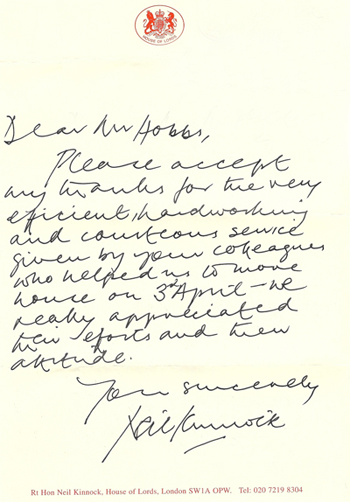 HOUSE OF LORDS
Dear Mr Hobbs,
Please accept
my thanks for the very
efficient, hardworking
and courteous service
given by your colleagues
who helped us to move
house on 3rd April - we
really appreciated
their efforts and their
attitude.
Yours sincerely
Neil Kinnock
Rt Hon Neil Kinnock, House of Lords, London SW1A OPW. Tel: 020 7219 8304